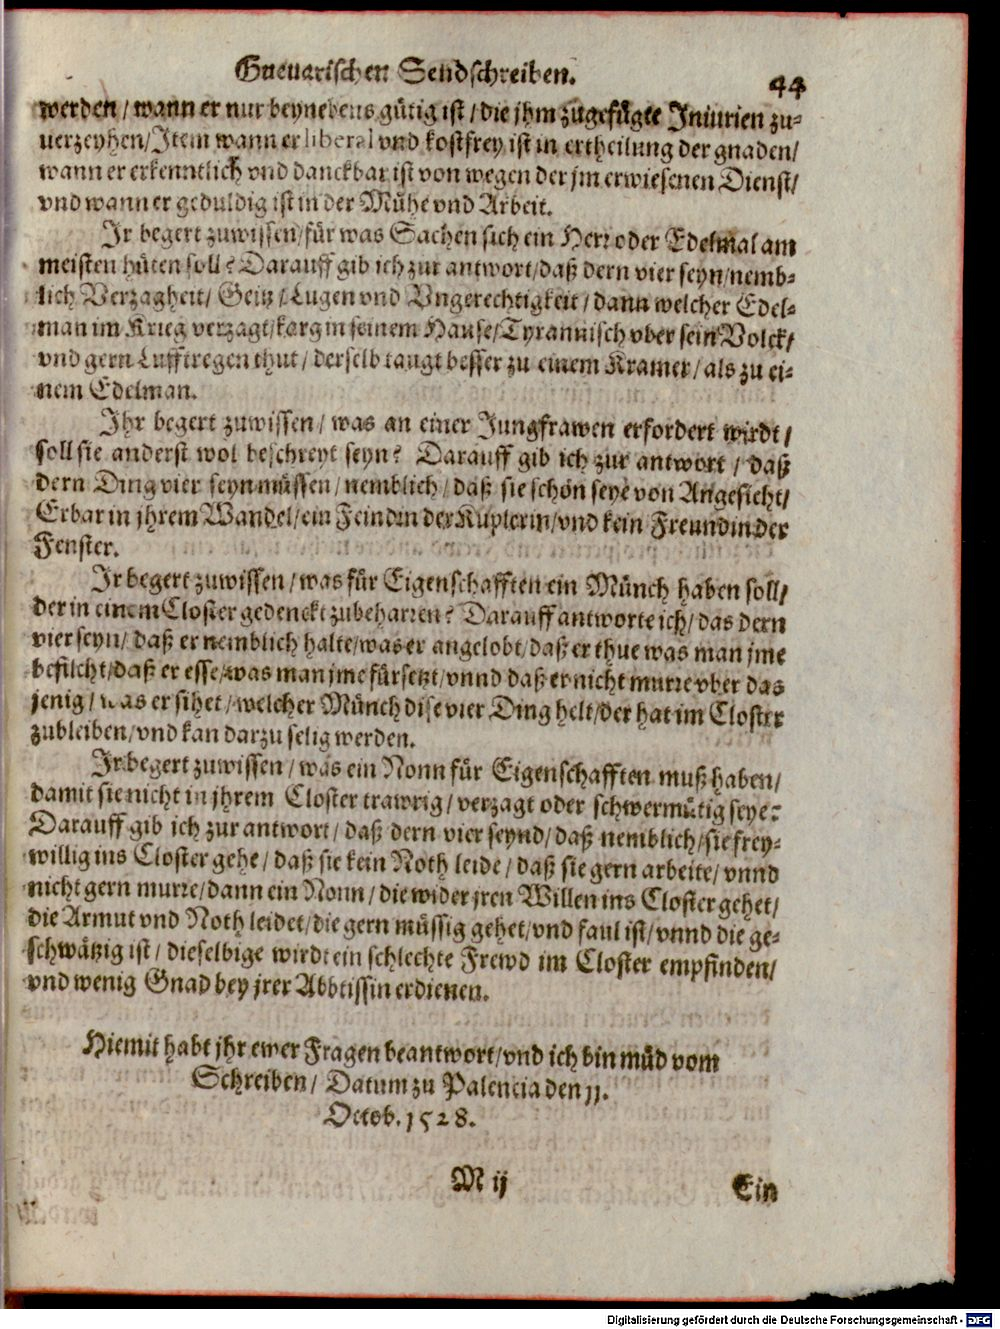 Gueuarischen Sendschreiben.
44
werden / wann er nur beynebens gütig ist / die jhm zugefügte Iniurien zu-
uerzeyhen / Item wann er liberal vnd kostfrey ist in ertheilung der gnaden /
wann er erkenntlich vnd danckbar ist von wegen der jm erwiesenen Dienst /
vnd wann er geduldig ist in der Mühe vnd Arbeit.
Ir begert zuwissen / für was Sachen sich ein Herr oder Edelmal am
meisten hüten soll? Darauff gib ich zur antwort / daß dern vier seyn / nemb-
lich Verzagheit / Geitz / Lugen vnd Vngerechtigkeit / dann welcher Edel-
man im Krieg verzagt / karg in seinem Hause / Tyrannisch vber sein Volck /
vnd gern Lufftregen thut / derselb taugt besser zu einem Kramer / als zu ei-
nem Edelman.
Ihr begert zuwissen / was an einer Jungfrawen erfordert wirdt /
soll sie anderst wol beschreyt seyn? Darauff gib ich zur antwort / daß
dern Ding vier seyn müssen / nemblich / daß sie schön seye von Angesicht /
Erbar in jhrem Wandel / ein Feindin der Kuplerin / vnd kein Freundin der
Fenster.
Ir begert zuwissen / was für Eigenschafften ein Münch haben soll /
der in einem Closter gedenckt zubeharren? Darauff antworte ich / das dern
vier seyn / daß er nemblich halte / was er angelobt / daß er thue was man jme
befilcht / daß er esse / was man jme fürsetzt / vnnd daß er nicht murre vber das
jenig / was er sihet / welcher Münch dise vier Ding helt / der hat im Closter
zubleiben / vnd kan darzu selig werden.
Ir begert zuwissen / was ein Nonn für Eigenschafften muß haben /
damit sie nicht in jhrem Closter trawrig / verzagt oder schwermütig seye?
Darauff gib ich zur antwort / daß dern vier seynd / daß nemblich / sie frey-
willig ins Closter gehe / daß sie kein Noth leide / daß sie gern arbeite / vnnd
nicht gern murre / dann ein Nonn / die wider jren Willen ins Closter gehet /
die Armut vnd Noth leidet / die gern müssig gehet / vnd faul ist / vnnd die ge-
schwätzig ist / dieselbige wirdt ein schlechte Frewd im Closter empfinden /
vnd wenig Gnad bey jrer Abbtissin erdienen.
Hiemit habt jhr ewer Fragen beantwort / vnd ich bin müd vom
Schreiben / Datum zu Palencia den 11.
Octob. 1528.
M ij
Ein
Digitalisierung gefördert durch die Deutsche Forschungsgemeinschaft - DFG